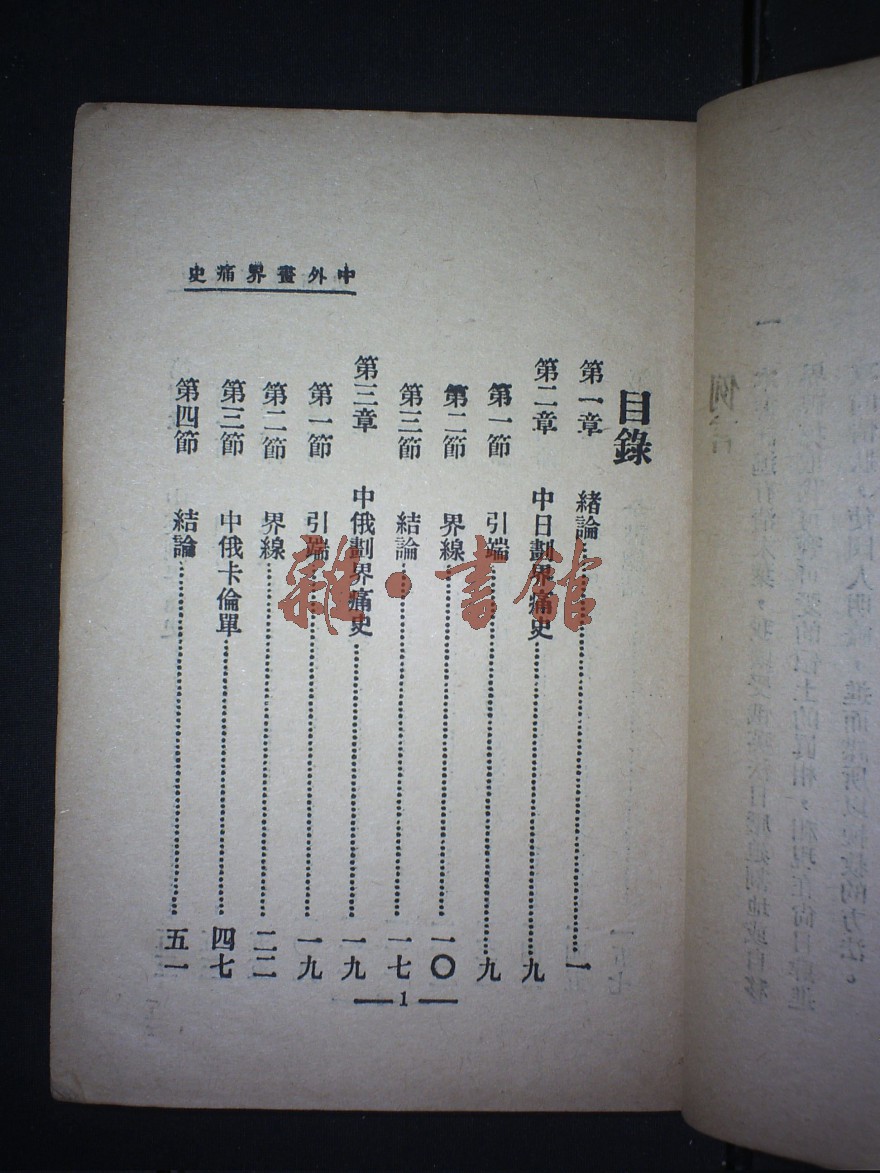 中外畫界痛史
目錄
第一章 緒論 一
第二章 中日劃界痛史 九
第一節 引端 九
第二節 界線 一〇
第三節 結論 一七
第三章 中俄劃界痛史 一九
第一節 引端 一九
第二節 界線 二二
第三節 中俄卡倫單 四七
第四節 結論 五一
1
雜·書館